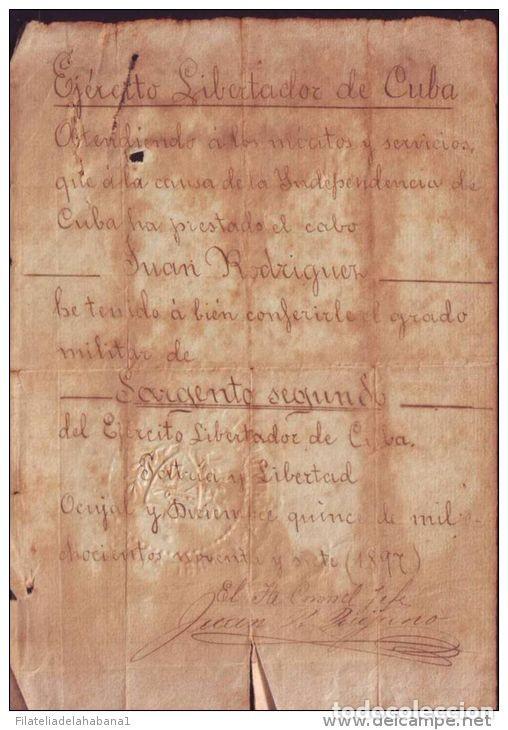 Ejército Libertador de Cuba
Atendiendo á los méritos y servicios,
que á la causa de la Independencia de
Cuba ha prestado el cabo
Juan Rodriguez
he tenido á bién conferirle el grado
militar de
Sargento segundo
del Ejército Libertador de Cuba.
Patria y Libertad
y Diciembre quince de mil
ochocientos noventa y siete (1897)
El Jefe
Juan
todocoleccion
Filateliadelahabana1
www.delcampe.net